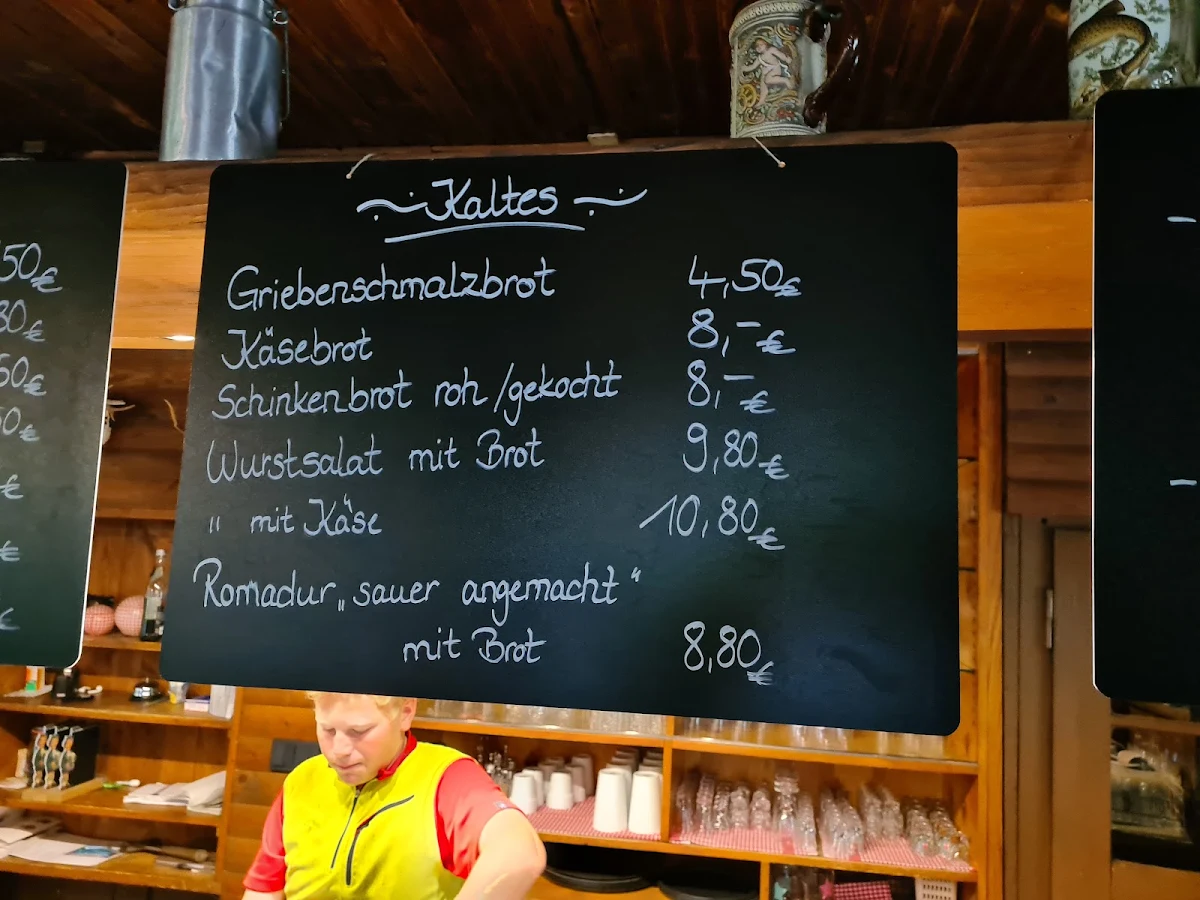 Kaltes
Griebenschmalzbrot 4,50€
Käsebrot 8,-€
Schinkenbrot roh/gekocht 8,-€
Wurstsalat mit Brot 9,80€
" mit Käse 10,80€
Romadur „sauer angemacht“
mit Brot 8,80€
50€
80€
50€
50€
€
€
€